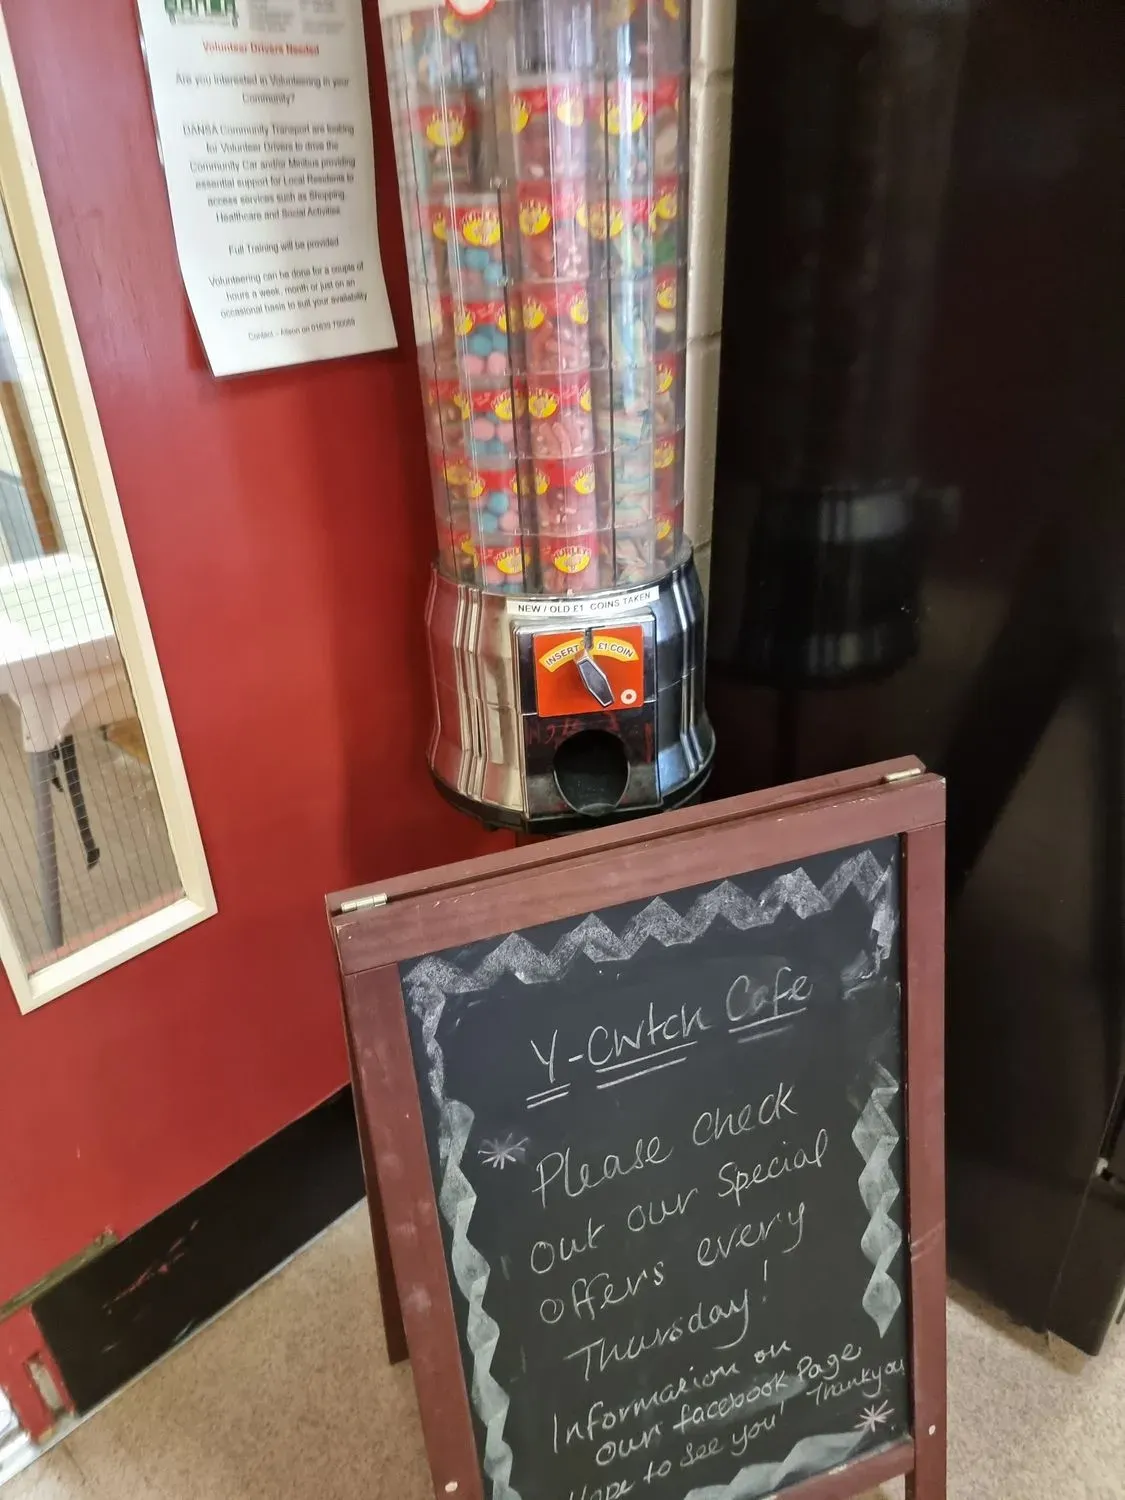 Volunteer Drivers Needed
Are you interested in Volunteering in your
Community?
DANSA Community Transport are looking
for Volunteer Drivers to drive the
Community Car and/or Minibus providing
essential support for Local Residents to
access services such as Shopping,
Healthcare and Social Activities
Full Training will be provided
Volunteering can be done for a couple of
hours a week, month or just on an
occasional basis to suit your availability
Contact - Alison on
HURLEYS
HURLEYS
HURLEYS
NEW / OLD £1 COINS TAKEN
INSERT £1 COIN
Y-Cwtch Cafe
Please check
out our Special
offers every
Thursday!
Information on
our facebook Page
Hope to see you! Thankyou